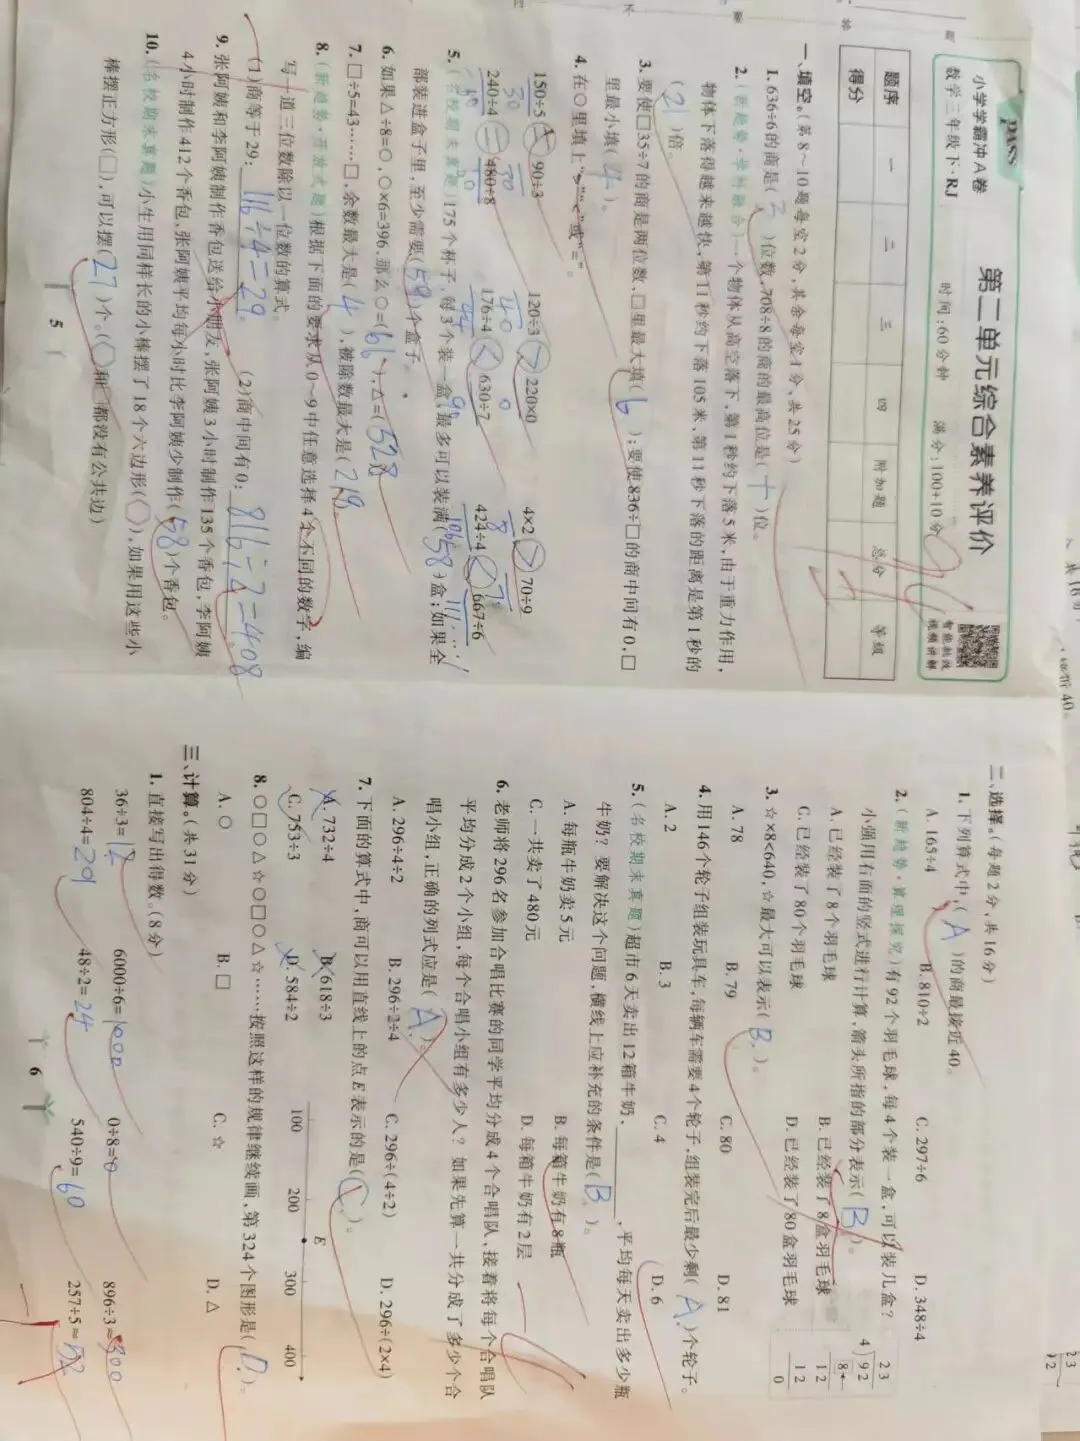 PASS
小学学霸冲A卷
数学三年级下·RJ
第二单元综合素养评价
时间:60分钟 满分:100+10分
智能批改
视频讲解
题序 一 二 三 四 附加题 总分 等级
得分
一、填空。(第8~10题每空2分,其余每空1分,共25分)
1. 636÷6的商是(三)位数,708÷8的商的最高位是(十)位。
2.(新趋势·学科融合)一个物体从高空落下,第1秒约下落5米,由于重力作用,
物体下落得越来越快,第11秒约下落105米,第11秒下落的距离是第1秒的
(21)倍。
3. 要使□35÷7的商是两位数,□里最大填(6);要使836÷□的商中间有0,□
里最小填(4)。
4. 在○里填上“>”“<”或“=”。
150÷5 90÷3 120÷3 > 220×0 4×2 > 70÷9
30 30 40 0 8
240÷4 = 480÷8 176÷4 < 630÷7 424÷4 < 667÷6
60 44 90 106 111……1
5.(名校期末真题)175个杯子,每3个装一盒,最多可以装满(58)盒;如果全
部装进盒子里,至少需要(59)个盒子。
6. 如果△÷8=○,○×6=396,那么○=(66),△=(528)
7. □÷5=43……□,余数最大是(4),被除数最大是(219)。
8.(新趋势·开放式题)根据下面的要求从0~9中任意选择4个不同的数字,编
写一道三位数除以一位数的算式。
(1)商等于29: 116÷4=29。 (2)商中间有0: 816÷2=408
9. 张阿姨和李阿姨制作香包送给小朋友,张阿姨3小时制作135个香包,李阿姨
4小时制作412个香包,张阿姨平均每小时比李阿姨少制作(58)个香包。
10.(名校期末真题)小生用同样长的小棒摆了18个六边形(⬡),如果用这些小
棒摆正方形(□),可以摆(27)个。(⬡和□都没有公共边)
5
二、选择。(每题2分,共16分)
1. 下列算式中,(A)的商最接近40。
A. 165÷4 B. 810÷2 C. 297÷6 D. 348÷4
2.(新趋势·算理探究)有92个羽毛球,每4个装一盒,可以装几盒?
小强用右面的竖式进行计算,箭头所指的部分表示(B)。
A. 已经装了8个羽毛球 B. 已经装了8盒羽毛球
C. 已经装了80个羽毛球 D. 已经装了80盒羽毛球
23
4)92
8
12
12
0
3. ☆×8<640,☆最大可以表示(B)。
A. 78 B. 79 C. 80 D. 81
4. 用146个轮子组装玩具车,每辆车需要4个轮子,组装完后最少剩(A)个轮子。
A. 2 B. 3 C. 4 D. 6
5.(名校期末真题)超市6天卖出12箱牛奶,________,平均每天卖出多少瓶
牛奶?要解决这个问题,横线上应补充的条件是(B)。
A. 每瓶牛奶卖5元 B. 每箱牛奶有8瓶
C. 一共卖了480元 D. 每箱牛奶有2层
6. 老师将296名参加合唱比赛的同学平均分成4个合唱队,接着将每个合唱队
平均分成2个小组,每个合唱小组有多少人?如果先算一共分成了多少个合
唱小组,正确的列式应是(A)。
A. 296÷4÷2 B. 296÷2÷4 C. 296÷(4÷2) D. 296÷(2×4)
7. 下面的算式中,商可以用直线上的点E表示的是(C)。
A. 732÷4 B. 618÷3
C. 753÷3 D. 584÷2
E
100 200 300 400
8. ○□○△☆○□○△☆……按照这样的规律继续画,第324个图形是(D)。
A. ○ B. □ C. ☆ D. △
三、计算。(共31分)
1. 直接写出得数。(8分)
36÷3=12 6000÷6=1000 0÷8=0 896÷3≈300
804÷4=201 48÷2=24 540÷9=60 257÷5≈52
6